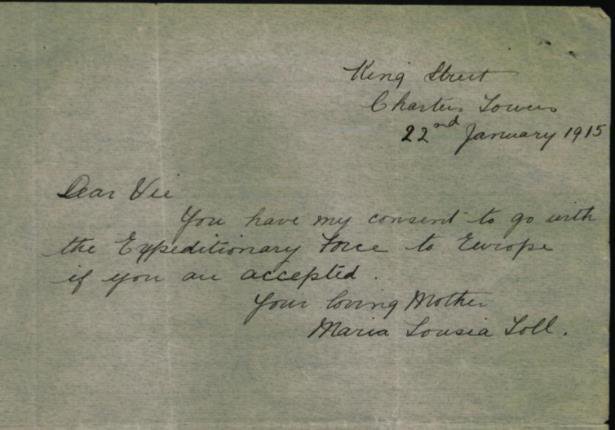 King Street
Charters Towers
22nd January 1915
Dear Vic
You have my consent to go with
the Expeditionary Force to Europe
if you are accepted.
Your loving Mother
Maria Lousia Toll.